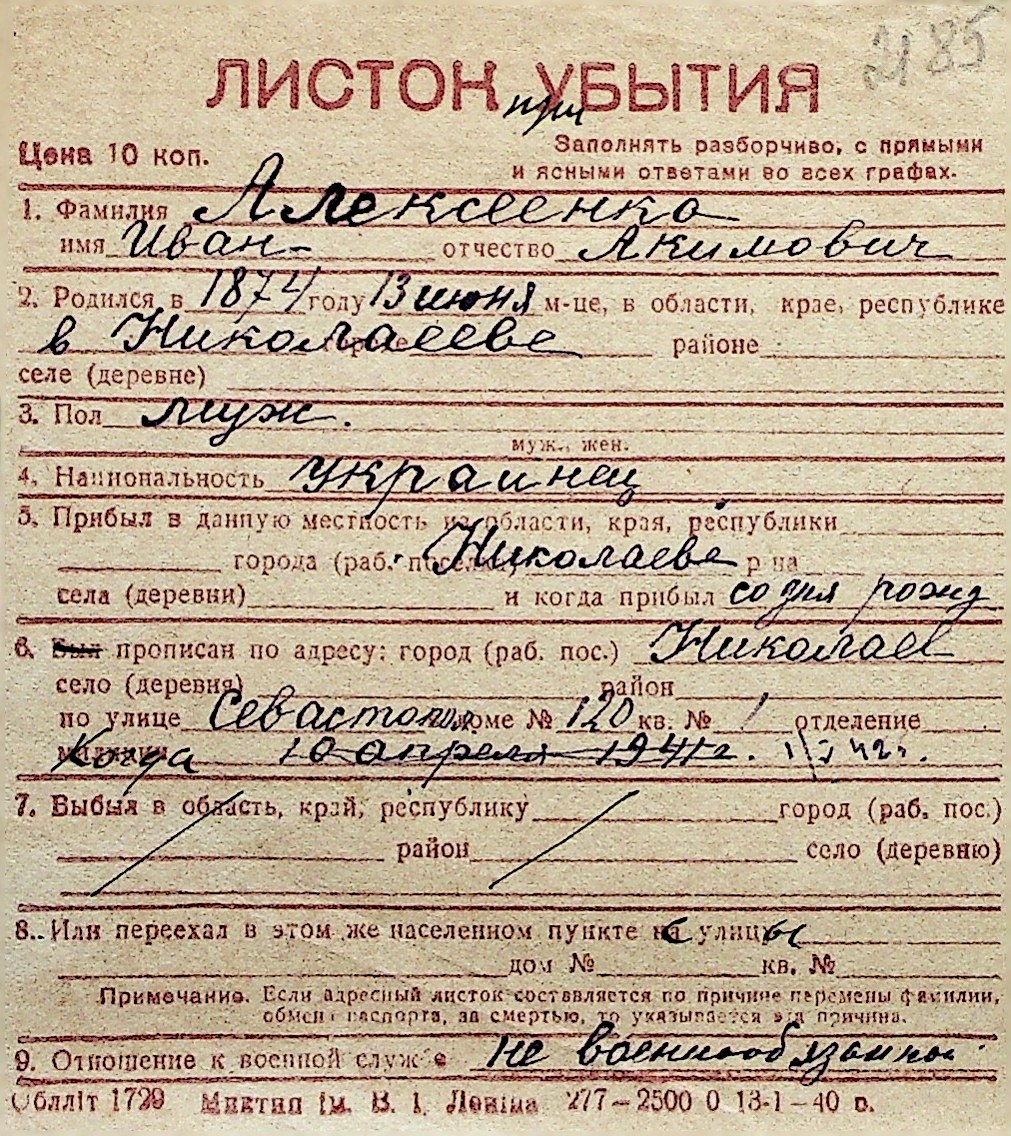 2185
ЛИСТОК УБЫТИЯ
при
Цена 10 коп.
Заполнять разборчиво, с прямыми
и ясными ответами во всех графах.
1. Фамилия Алексеенко
имя Иван отчество Акимович
2. Родился в 1874 году 13 июня м-це, в области, крае, республике
в Николаеве районе
селе (деревне)
3. Пол муж.
муж., жен.
4. Национальность украинец
5. Прибыл в данную местность из области, края, республики
города (раб. поселка) Николаеве р на
села (деревни) и когда прибыл со дня рожд
6. Был прописан по адресу: город (раб. пос.) Николаев
село (деревня) район
по улице Севастопол доме № 120 кв. № 1 отделение
милиции Когда 10 апреля 1941 г. 1/I 42 г.
7. Выбыл в область, край, республику город (раб. пос.)
район село (деревню)
8. Или переехал в этом же населенном пункте с улицы
дом № кв. №
Примечание. Если адресный листок составляется по причине перемены фамилии,
обмена паспорта, за смертью, то указывается эта причина.
9. Отношение к военной службе не военнообязанной
Облліт 1729 Миктип ім. В. І. Леніна 277—2500 0 13-1—40 р.